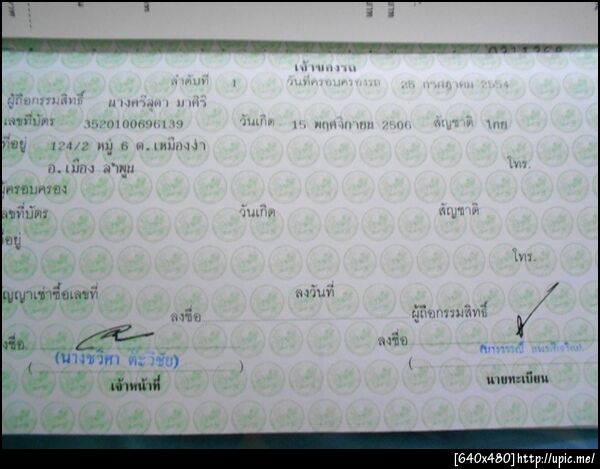 เจ้าของรถ
ลำดับที่ 1 วันที่ครอบครองรถ 25 กรกฎาคม 2554
ผู้ถือกรรมสิทธิ์ นางศรีสุดา มาศิริ
เลขที่บัตร 3520100696139 วันเกิด 15 พฤศจิกายน 2506 สัญชาติ ไทย
ที่อยู่ 124/2 หมู่ 6 ต.เหมืองง่า
อ.เมือง ลำพูน โทร.
ผู้ครอบครอง
เลขที่บัตร วันเกิด สัญชาติ
ที่อยู่
โทร.
สัญญาเช่าซื้อเลขที่ ลงวันที่
ลงชื่อ ผู้ถือกรรมสิทธิ์
ลงชื่อ ลงชื่อ
เจ้าหน้าที่ นายทะเบียน
[640x480]http://upic.me/